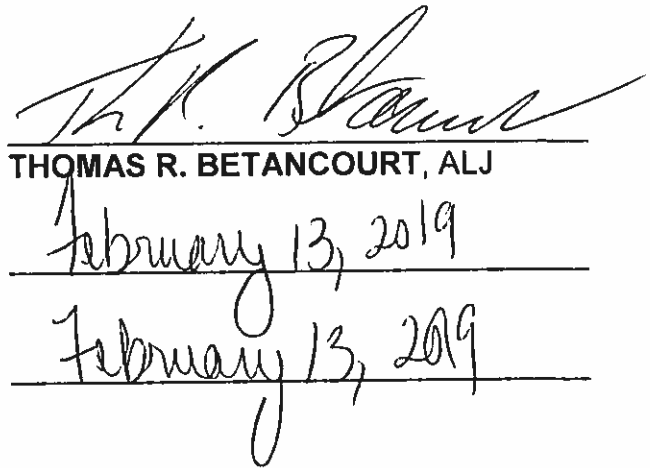 Th R. B
THOMAS R. BETANCOURT, ALJ
February 13, 2019
February 13, 2019